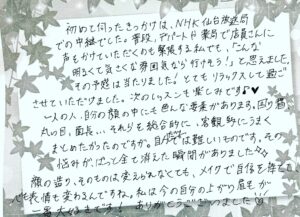 初めて伺ったきっかけは、NHK仙台放送局
での中継でした。普段、デパートや薬局で店員さんに
声をかけていただくのも緊張する私でも、「こんな
明るくて気さくな雰囲気なら行けそう!」と思えました。
その予感は当たりました!とてもリラックスして過ご
させていただけました。次のレッスンも楽しみです♪♥
一人の人、自分の顔の中にも色んな要素があります。困り眉、
丸い目、面長… それらを総合的に、客観的にうまく
まとめたかったのですが。自分では難しいものです。その
悩みが、ぱっと全て消えた瞬間がありました
顔の造り、そのものは変えられなくても、メイクで自信を持
も表情も変わるんですね。私は今の自分のような眉毛が
一番大好きです! ありがとうございました